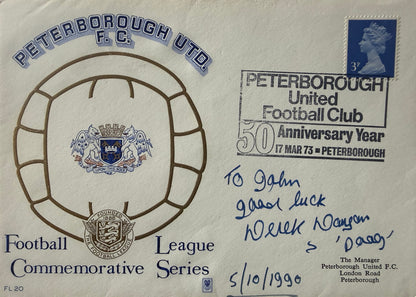 PETERBOROUGH UTD.
F.C.
3P
PETERBOROUGH
United
Football Club
50 Anniversary Year
17 MAR 73 ■ PETERBOROUGH
To John
good luck
Derek Dougan
'Doog'
Football League
Commemorative Series
FL 20
5/10/1990
The Manager
Peterborough United F.C.
London Road
Peterborough